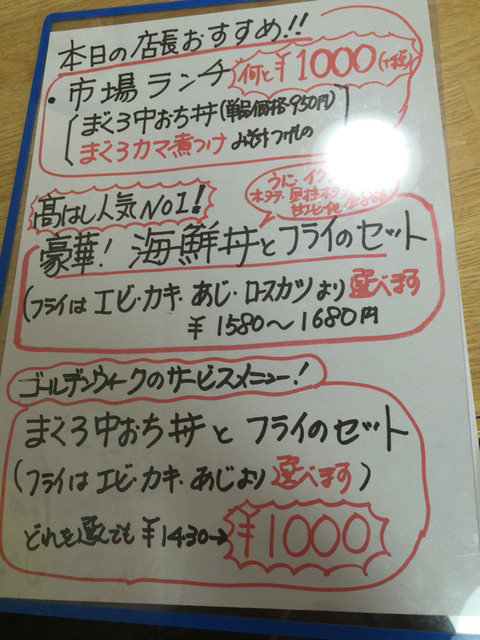 本日の店長おすすめ!!
・市場ランチ 何と¥1000(税
まぐろ中おち丼(単品価格¥950円)
まぐろカマ煮つけ みそ汁 つけもの
高はし人気NO1!
うに・イク
ホタテ、
甘エビ他
豪華! 海鮮丼とフライのセット
(フライは エビ・カキ・あじ・ロースカツより選べます
¥1580〜1680円
ゴールデンウィークのサービスメニュー!
まぐろ中おち丼と フライのセット
(フライは エビ・カキ・あじより 選べます)
どれを選んでも ¥1430→ ¥1000